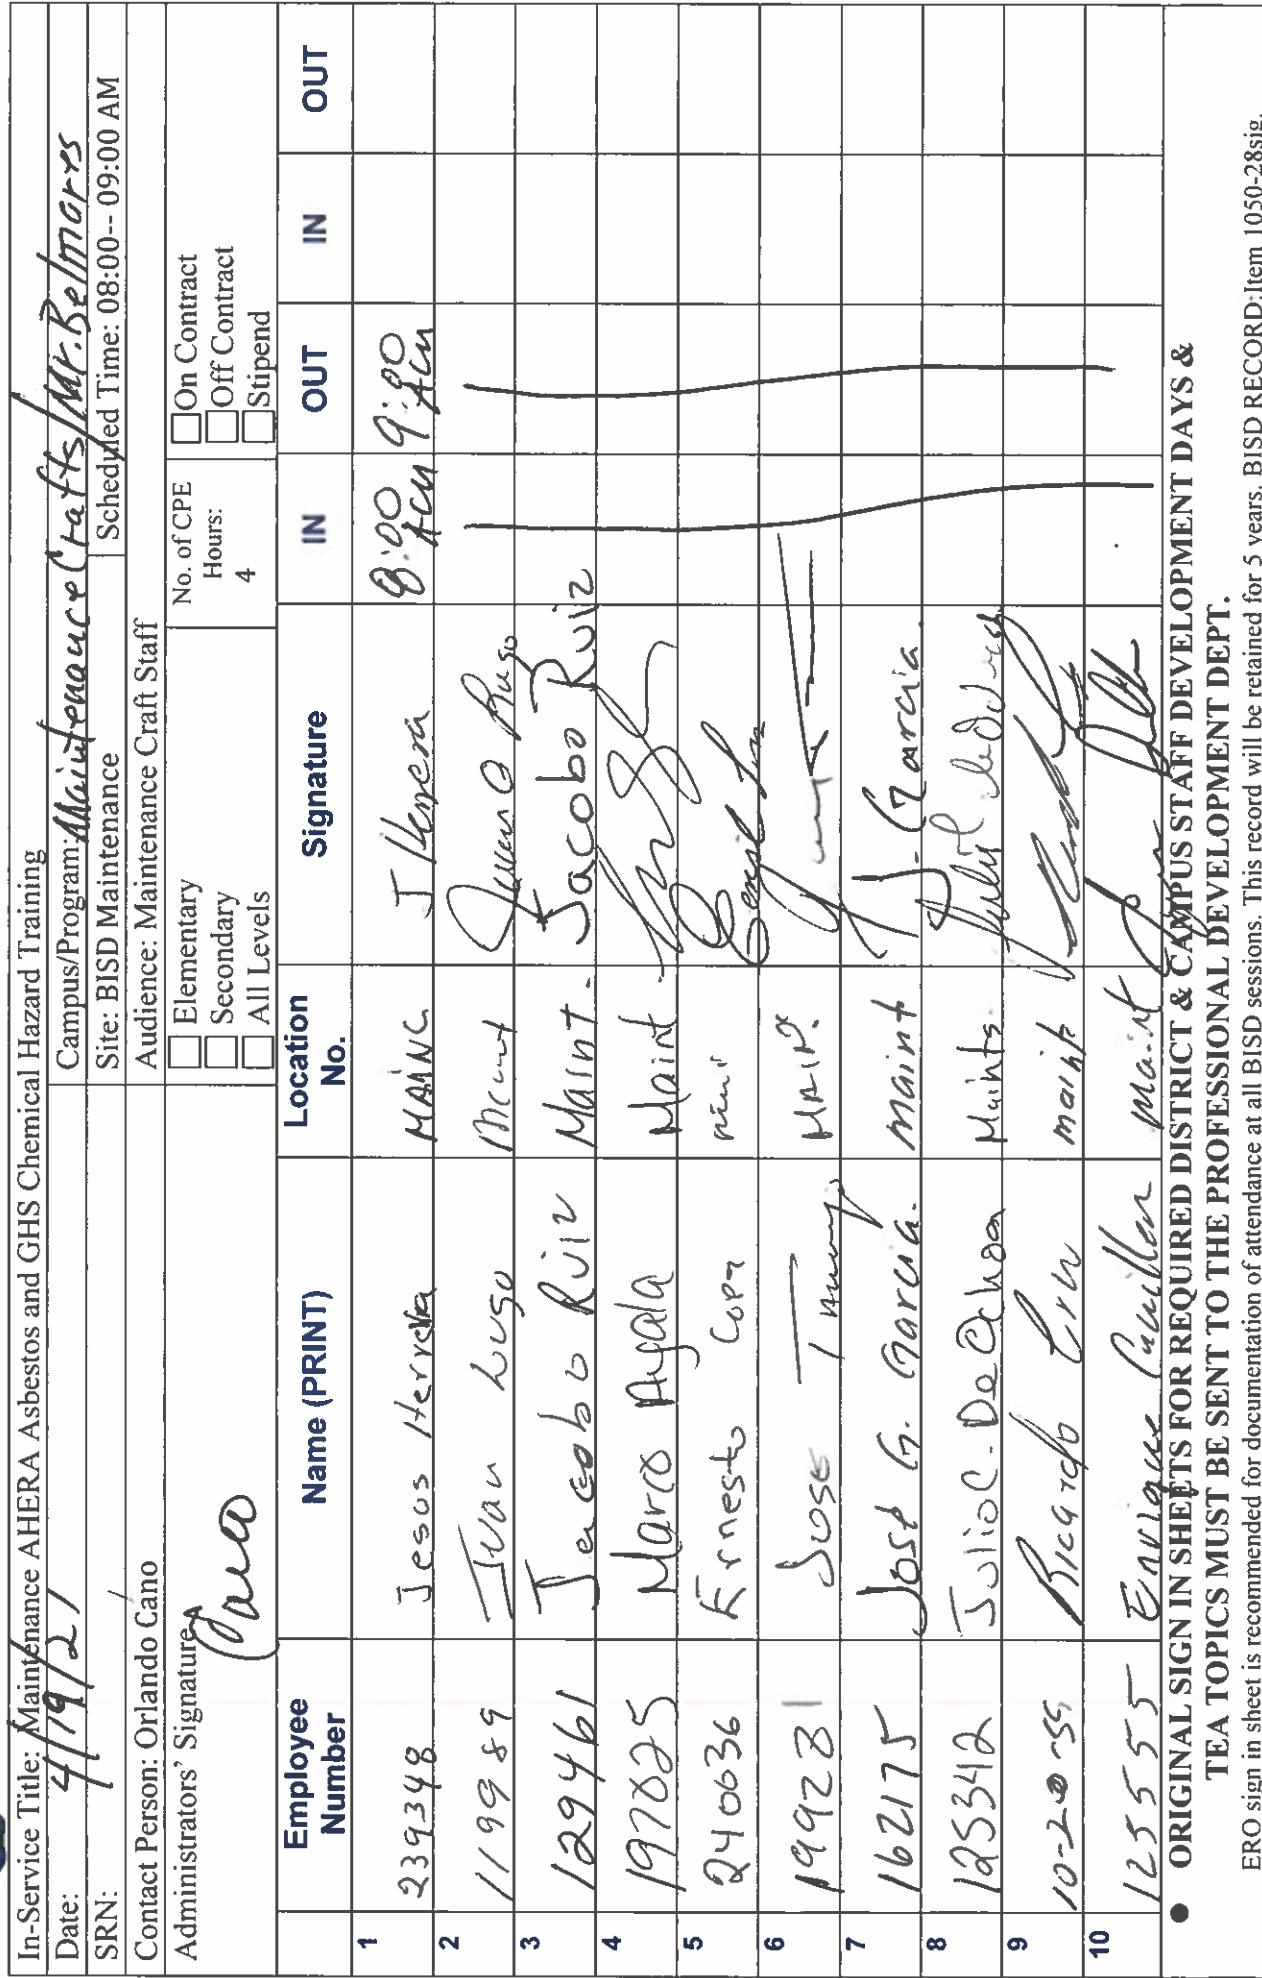 In-Service Title: Maintenance AHERA Asbestos and GHS Chemical Hazard Training
Date: 4/19/21 Campus/Program: Maintenance Crafts/Mr. Belmares
SRN: Site: BISD Maintenance Scheduled Time: 08:00-- 09:00 AM
Contact Person: Orlando Cano Audience: Maintenance Craft Staff
Administrators' Signature Cano
Elementary
Secondary
All Levels
No. of CPE
Hours:
4
On Contract
Off Contract
Stipend
Employee Number Name (PRINT) Location No. Signature IN OUT IN OUT
1 239348 Jesus Herrera MAINC J Herrera 8:00 9:00
2 119989 Ivan Lugo Lugo
3 129461 Jacobo Ruiz Maint. Jacobo Ruiz
4 197025 Marco Ayala Maint
5 240636 Ernesto
6 199231 Jose
7 162175 Jose G. Garcia. maint J. Garcia.
8 125342 Julio C. De Ochoa Maints.
9 Ricardo maint
10 125555 Enrique Cuellar maint
● ORIGINAL SIGN IN SHEETS FOR REQUIRED DISTRICT & CAMPUS STAFF DEVELOPMENT DAYS &
TEA TOPICS MUST BE SENT TO THE PROFESSIONAL DEVELOPMENT DEPT.
ERO sign in sheet is recommended for documentation of attendance at all BISD sessions. This record will be retained for 5 years. BISD RECORD:Item 1050-28sig.